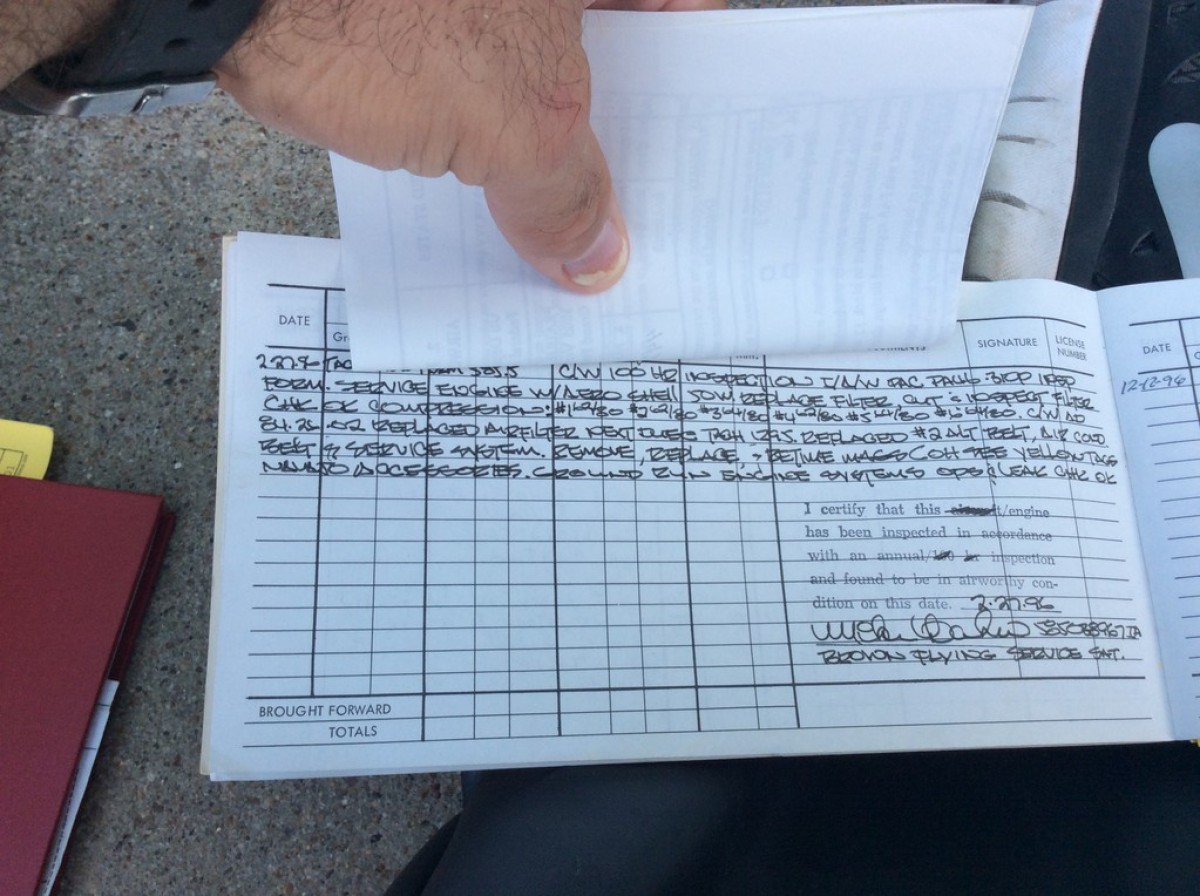 DATE
SIGNATURE
LICENSE NUMBER
DATE
2-27-96 TAC C/W 100 HR INSPECTION I/A/W INSP
FORM. SERVICE ENGINE W/AERO SHELL 50W. REPLACE FILTER. CUT & INSPECT FILTER
CHK OK COMPRESSION: #1 62/80 #2 62/80 #3 64/80 #4 62/80 #5 64/80 #6 64/80. C/W AD
84-26-02 REPLACED AIRFILTER NEXT DUE TACH 1295. REPLACED #2 ALT BELT, AIR COND.
BELT & SERVICE SYSTEM. REMOVE, REPLACE, & RETIME MAGS SEE YELLOW TAGS
ACCESSORIES. GROUND RUN ENGINE SYSTEMS OPS & LEAK CHK OK
12-12-96
I certify that this aircraft/engine
has been inspected in accordance
with an annual/100 hr inspection
and found to be in airworthy con-
dition on this date. 2-27-96
IA
BROWN FLYING SERVICE SAT.
BROUGHT FORWARD
TOTALS